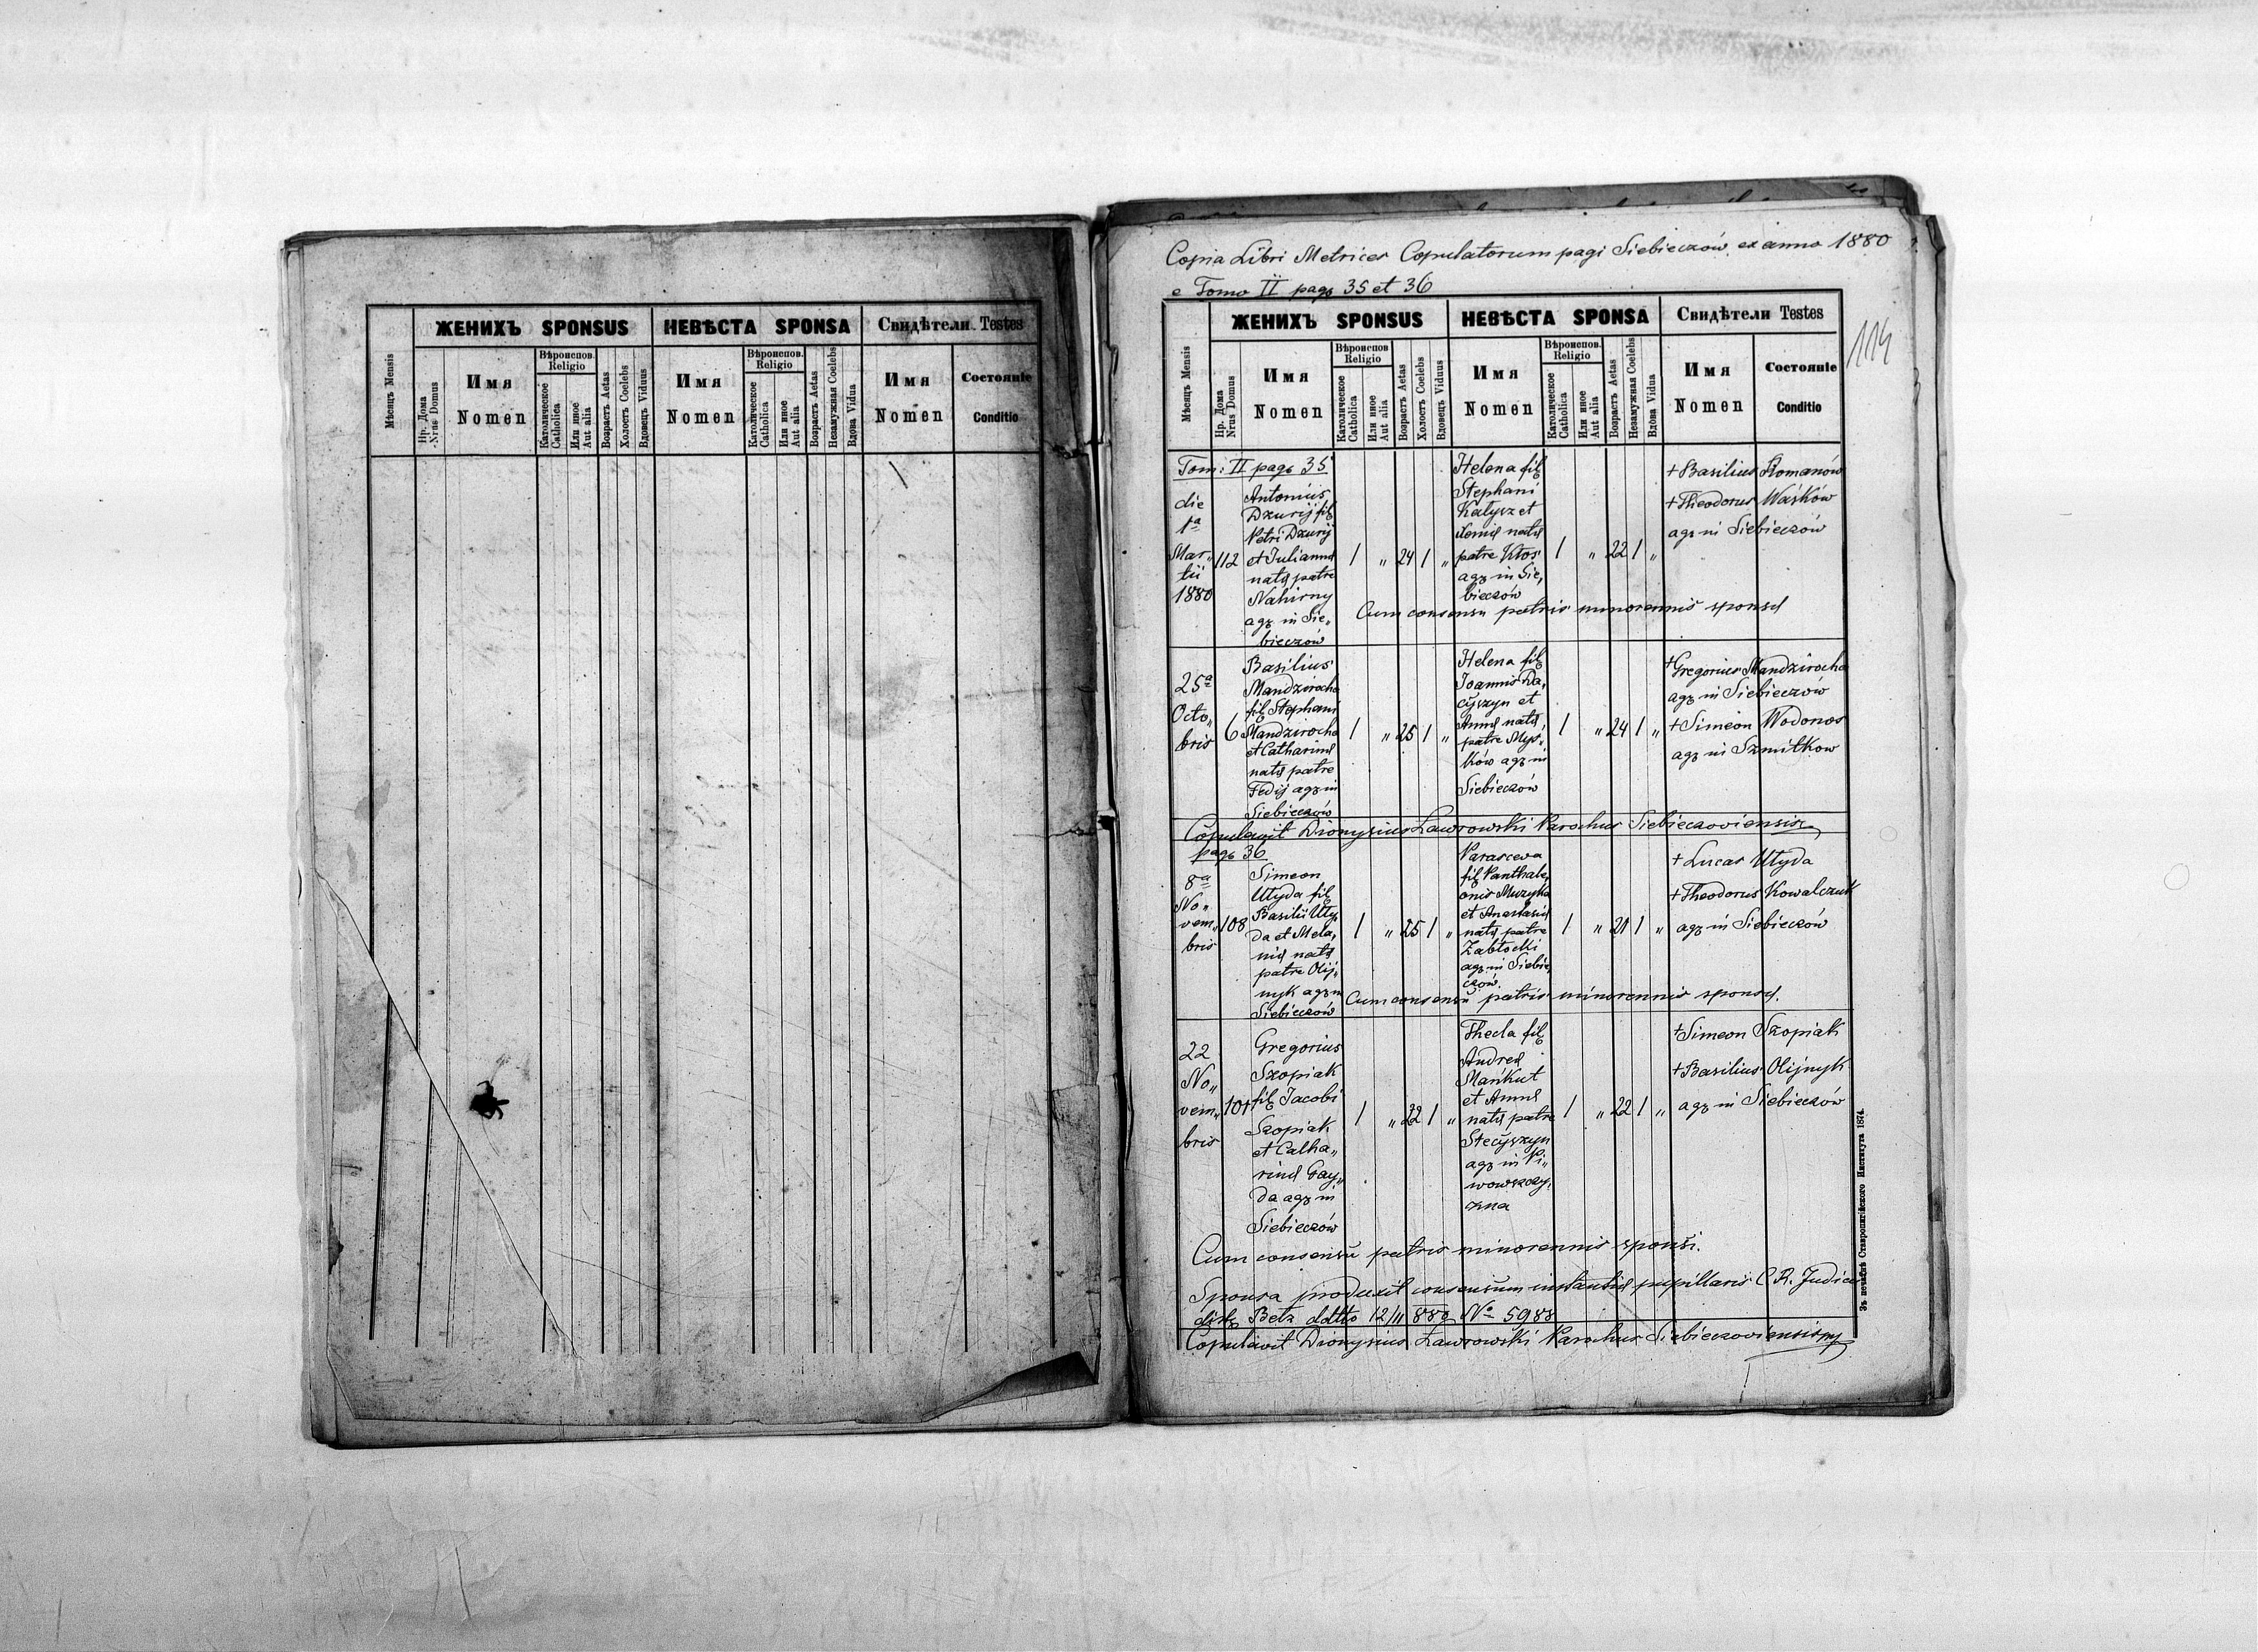 ЖЕНИХЪ SPONSUS НЕВѢСТА SPONSA Свидѣтели Testes
Мѣсяцъ Mensis
Нр. Дома
Nrus Domus
Имя
Nomen
Вѣроиспов.
Religio
Католическое
Catholica
Или иное
Aut alia
Возрастъ Aetas
Холостъ Coelebs
Вдовецъ Viduus
Имя
Nomen
Вѣроиспов.
Religio
Католическое
Catholica
Или иное
Aut alia
Возрастъ Aetas
Незамужная Coelebs
Вдова Vidua
Имя
Nomen
Состоянiе
Conditio
Copia Libri Metrices Copulatorum pagi Siebieczów ex anno 1880
e Tomo II pag 35 et 36
114
ЖЕНИХЪ SPONSUS НЕВѢСТА SPONSA Свидѣтели Testes
Мѣсяцъ Mensis
Нр. Дома
Nrus Domus
Имя
Nomen
Вѣроиспов
Religio
Католическое
Catholica
Или иное
Aut alia
Возрастъ Aetas
Холостъ Coelebs
Вдовецъ Viduus
Имя
Nomen
Вѣроиспов.
Religio
Католическое
Catholica
Или иное
Aut alia
Возрастъ Aetas
Незамужная Coelebs
Вдова Vidua
Имя
Nomen
Состоянiе
Conditio
Tom: II pag 35
die
1a
Mar„
tii
1880
112
Antonius
Dzurij fil
Petri Dzurij
et Julianna
nata patre
Nahirny
agr in Sie„
bieczów
1 „ 24 1 „
Helena fil
Stephani
Kalysz et
nata
patre Kłos
agr in Sie,
bieczów
1 „ 22 1 „
+ Basilius Romanów
+ Theodorus Waśków
agr in Siebieczów
Cum consensu patris minorennis sponsa
25a
Octo„
bris
6
Basilius
Mandzirocha
fil Stephani
Mandzirocha
et Catharina
nata patre
Fedij agr in
Siebieczów
1 „ 25 1 „
Helena fil
Joannis
et
Anna nata
patre Mys„
ków agr in
Siebieczów
1 „ 24 1 „
+ Gregorius Mandzirocha
agr in Siebieczów
+ Simeon Wodonos
agr in Szmitkow
Copulavit Dionysius Ławrowski Parochus Siebieczoviensis
pag 36
8a
No„
vem„
bris
108
Simeon
Utyda fil
Basilii Uty„
da et Mela,
nia nata
patre Olij„
nyk agr in
Siebieczów
1 „ 25 1 „
Parasceva
fil Panthale,
onis Muzyka
et Anastasia
nata patre
Zabłocki
agr in Siebie,
czów.
1 „ 21 1 „
+ Lucas Utyda
+ Theodorus Kowalczuk
agr in Siebieczów
Cum consensu patris minorennis sponsa.
22
No„
vem„
bris
101
Gregorius
Szopiak
fil Jacobi
Szopiak
et Catha„
rina Gay„
da agr in
Siebieczów
1 „ 22 1 „
Thecla fil
Andrea
Mańkut
et Anna
nata patre
Stecyszyn
agr in Pi„
wowszczy,
zna
1 „ 22 1 „
+ Simeon Szopiak
+ Basilius Olijnyk
agr in Siebieczów
Cum consensu patris minorennis sponsi.
Sponsa produxit consensum instantia pupillaris C. R. Judicii
Bełz ddtto 12/11 880 No 5988
Copulavit Dionysius Ławrowski Parochus Siebieczoviensis
Зъ печатнѣ Ставропигійского Института 1874.